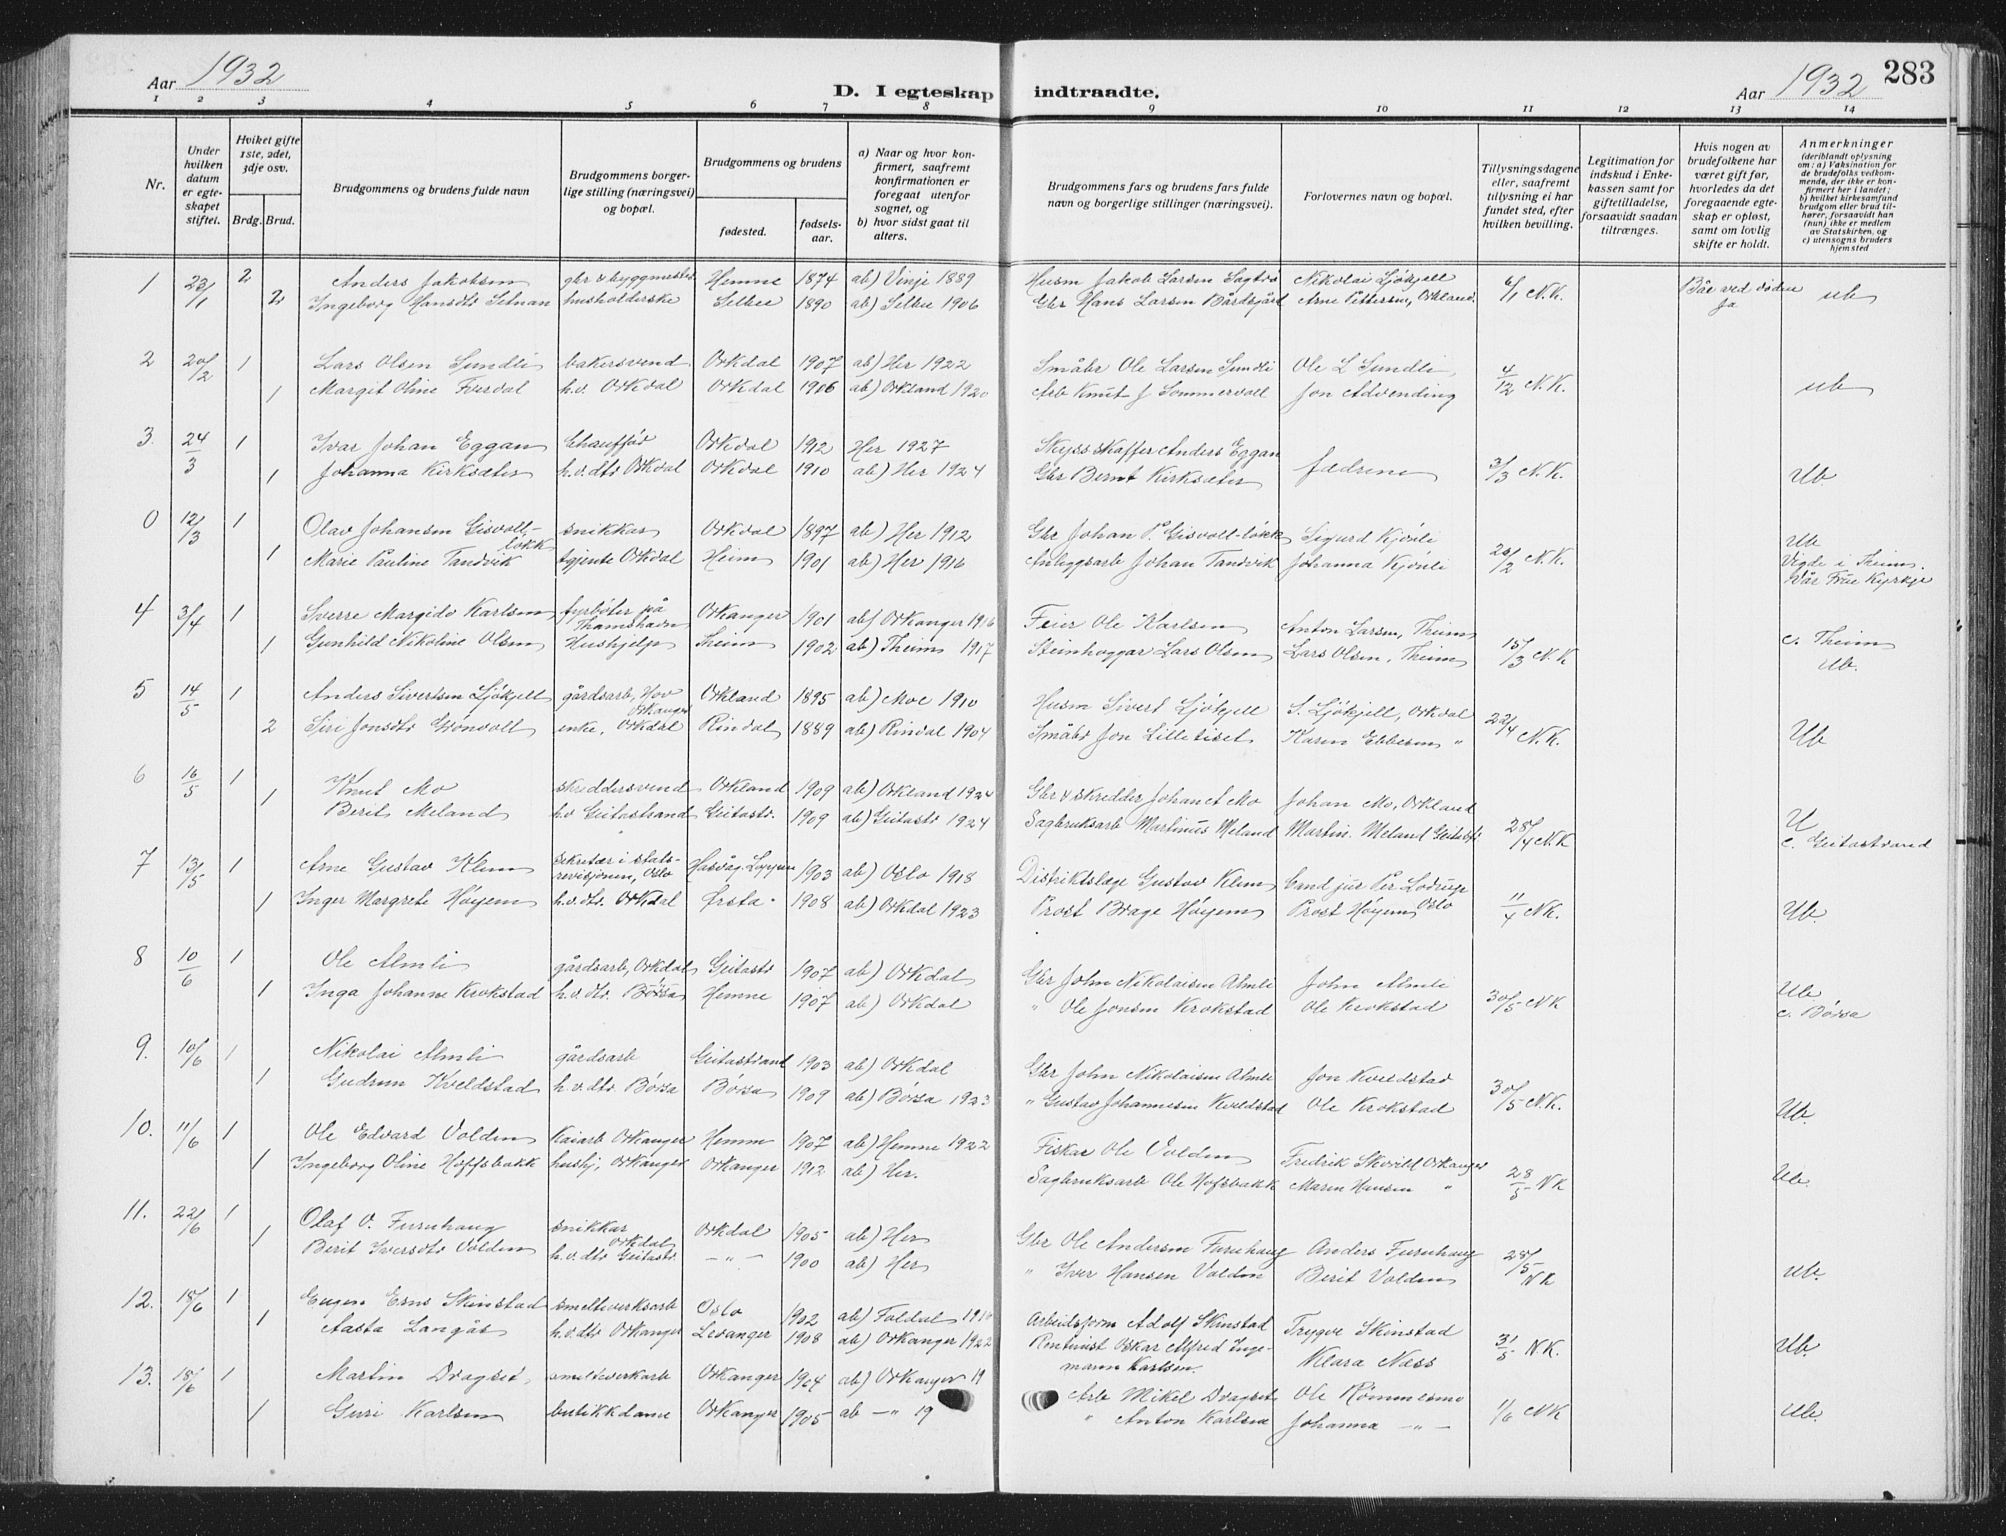 Aar 1932
D. I egteskap indtraadte.
Aar 1932
283
1 2 3 4 5 6 7 8 9 10 11 12 13 14
Nr.
Under hvilken datum er egteskapet stiftet.
Hvilket gifte 1ste, 2det, 3dje osv.
Brdg. Brud.
Brudgommens og brudens fulde navn
Brudgommens borgerlige stilling (næringsvei) og bopæl.
Brudgommens og brudens
fødested.
fødsels-aar.
a) Naar og hvor konfirmert, saafremt konfirmationen er foregaat utenfor sognet, og b) hvor sidst gaat til alters.
Brudgommens fars og brudens fars fulde navn og borgerlige stillinger (næringsvei).
Forlovernes navn og bopæl.
Tillysningsdagene eller, saafremt tillysning ei har fundet sted, efter hvilken bevilling.
Legitimation for indskud i Enkekassen samt for giftetilladelse, forsaavidt saadan tiltrænges.
Hvis nogen av brudefolkene har været gift før, hvorledes da det foregaaende egteskap er opløst, samt om lovlig skifte er holdt.
Anmerkninger (deriblandt oplysning om: a) Vaksination for de brudefolks vedkommende, der ikke er konfirmert her i landet; b) hvilket kirkesamfund brudgom eller brud tilhører, forsaavidt han (hun) ikke er medlem av Statskirken, og c) utensogns bruders hjemsted
1 23/1 2 Anders Jakobsen gbr & byggmester Hemne 1874 ab) Vinje 1889 Husm Jakob Larsen Sagtrø Nikolai Ljökjell 6/1 N.K. Båe ved døden
2 Ingeborg Hansdtr Selnan husholderske Selbu 1890 ab) Selbu 1906 Gbr Hans Larsen Bårdsgård Arne Pettersen, Orkland Ja ub
2 20/2 1 Lars Olsen Sundli bakersvend Orkdal 1907 ab) Her 1922 Småbr Ole Larsen Sundli Ole L Sundli 4/12 N.K.
1 Margit Oline Evjedal h.v. Orkdal Orkdal 1906 ab) Orkland 1920 Arb Knut J Sommervoll Jon Advending ub
3. 24/3 1 Ivar Johan Eggan Chauffør Orkdal 1912 Her 1927 Skysskaffer Anders Eggan
1 Johanna Kirksæter h.v.dtr Orkdal Orkdal 1910 ab) Her 1924 Gbr Bernt Kirksæter fædrene 3/3 N.K. Ub.
0 12/3 1 Olav Johansen Gisvoll-løkk snikkar Orkdal 1897 ab) Her 1912 Gbr Johan P. Gisvoll-løkk Sigurd Kjönli 20/2 N.K. Ub
1 Marie Pauline Tandvik tgjente Orkdal Heim 1901 ab) Her 1916 Anleggsarb Johan Tandvik Johanna Kjönli Vigde i Theim. Vår Frue Kyrkje
4 3/4 1 Sverre Margido Karlsen fyrbøter på Thamshavn Orkanger 1901 ab) Orkanger 1916 Feier Ole Karlsen Anton Larsen, Theim 15/3 N.K c. Theim
1 Gunhild Nikoline Olsen Hushjelp Theim 1902 ab) Theim 1917 Steinhoggar Lars Olsen Lars Olsen, Theim Ub.
5 14/5 1 Anders Sivertsen Ljökjell gårdsarb, Hov Orkanger Orkland 1895 ab) Moe 1910 Husm Sivert Ljökjell S. Ljökjell, Orkdal 22/4 N.K.
2 Siri Jonsdtr Grönvoll enke, Orkdal Rindal 1889 ab) Rindal 1904 Småbr Jon Lilletiset Karen Ebbesen " Ub
6 16/5 1 Knut Mo skreddersvend Orkland 1909 ab) Orkland 1924 Gbr & skredder Johan et Mo Johan Mo, Orkland
1 Berit Meland h.v Geitastrand Geitastr. 1909 ab) Geitastr 1924 Sagbruksarb Martinus Meland Martin. Meland Geitastr 28/4 N.K U c. Geitastrand
7 13/5 1 Arne Gustav Klem sekretær i statsrevisjonen, Oslo Hasvåg, Loppen 1903 ab) Oslo 1918 Distriktslæge Gustav Klem Cand jur Per Lodrup Oslo
1 Inger Margrete Høyem h.v.dtr. Orkdal Ørsta. 1908 ab) Orkdal 1923 Prost Brage Høyem Prost Høyem 11/4 N.K. Ub.
8 10/6 1 Ole Almli gårdsarb, Orkdal Geitastr 1907 ab) Orkdal Gbr John Nikolaisen Almli John Almli
1 Inga Johanne Krokstad h.v.dtr. Börsa Hemne 1907 ab) Orkdal " Ole Jonsen Krokstad Ole Krokstad 30/5 N.K Ub c. Börsa
9. 10/6 1 Nikolai Almli gårdsarb Geitastrand 1903 ab) Orkdal Gbr John Nikolaisen Almli Jon Kveldstad
1 Gudrun Kveldstad h.v.dtr Börsa Börsa 1909 ab) Börsa 1923 " Gustav Johannesen Kveldstad Ole Krokstad 30/5 N.K. Ub.
10. 11/6 1 Ole Edvard Volden Kaiarb Orkanger Hemne 1907 ab) Hemne 1922 Fiskar Ole Volden Fredrik Skorild Orkanger
1 Ingeborg Oline Hoffsbakk hushj, Orkanger Orkanger 1912 ab) Her. Sagbruksarb Ole Hofsbakk Maren Hansen " 28/5 N.K Ub.
11. 22/6 1 Olaf O. Furuhaug snikkar Orkdal Orkdal 1905 ab) Her Gbr Ole Andersen Furuhaug Anders Furuhaug
1 Berit Iversdtr Volden h.v.dtr Geitastr — " — 1900 ab) Her " Iver Hansen Volden Berit Volden 28/5 N.K Ub.
12. 15/6 1 Eugen Erns Skinstad smelteverksarb Oslo 1902 ab) Foldal Arbeidsform Adolf Skinstad Trygve Skinstad
1 Aasta Langås h.v.dtr Orkanger Levanger 1908 ab) Orkanger 1922 Rentenist Oskar Alfred Ingemann Karlsen. Klara Næss 31/5 N.K. Ub.
13. 18/6 1 Martin Dragset, smelteverkarb Orkanger 1904 ab) Orkanger 19 Arb Mikel Dragset Ole Rømmesmo
1 Guri Karlsen butikkdame Orkanger 1905 ab — " 19 " Anton Karlsen Johanna — " — 1/6 N.K Ub.